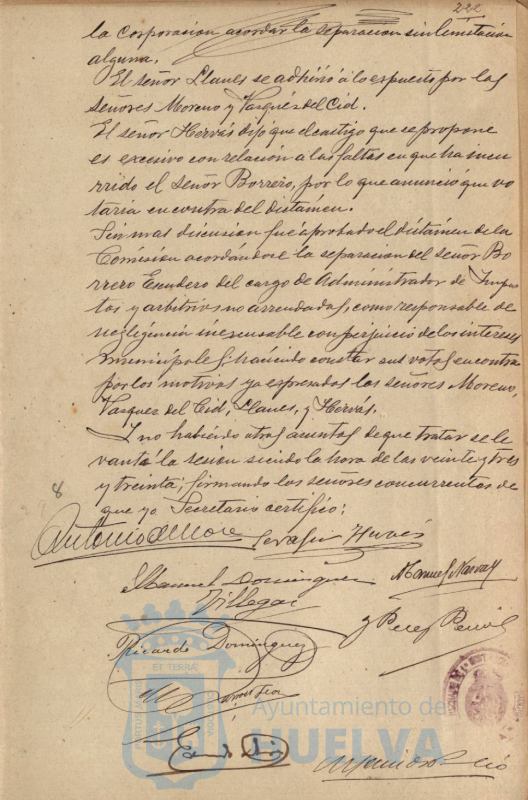 222
la corporacion acordar la separacion sin limitacion
alguna.
El señor Llanes se adhirió á lo espuesto por los
señores Moreno y Vasquez del Cid.
El señor Hervás dijó que el castigo que se propone
es excesivo con relación a las faltas en que ha incu
rrido el señor Borrero, por lo que anunció que vo
taria en contra del dictámen.
Sin mas discusion fué aprobado el dictámen de la
Comisión acordándose la separacion del señor Bo
rrero Escudero del cargo de Administrador de Impues
tos y arbitrios no arrendados, como responsable de
negligencia inexcusable con perjuicio de los intereses
municipales; haciendo constar sus votos en contra
por los motivos ya espresados los señores Moreno,
Vasquez del Cid, Llanes, y Hervás.
Y no habiendo otros asuntos de que tratar se le
vantó la sesión siendo la hora de las veinte y tres
y treinta, firmando los señores concurrentes de
que yo Secretario certifico:
8
Antonio de Mora
Manuel Dominguez
Manuel Narvaez
Villegas
y Perez
Ricardo Dominguez
ET TERRÆ
Ayuntamiento de
HUELVA